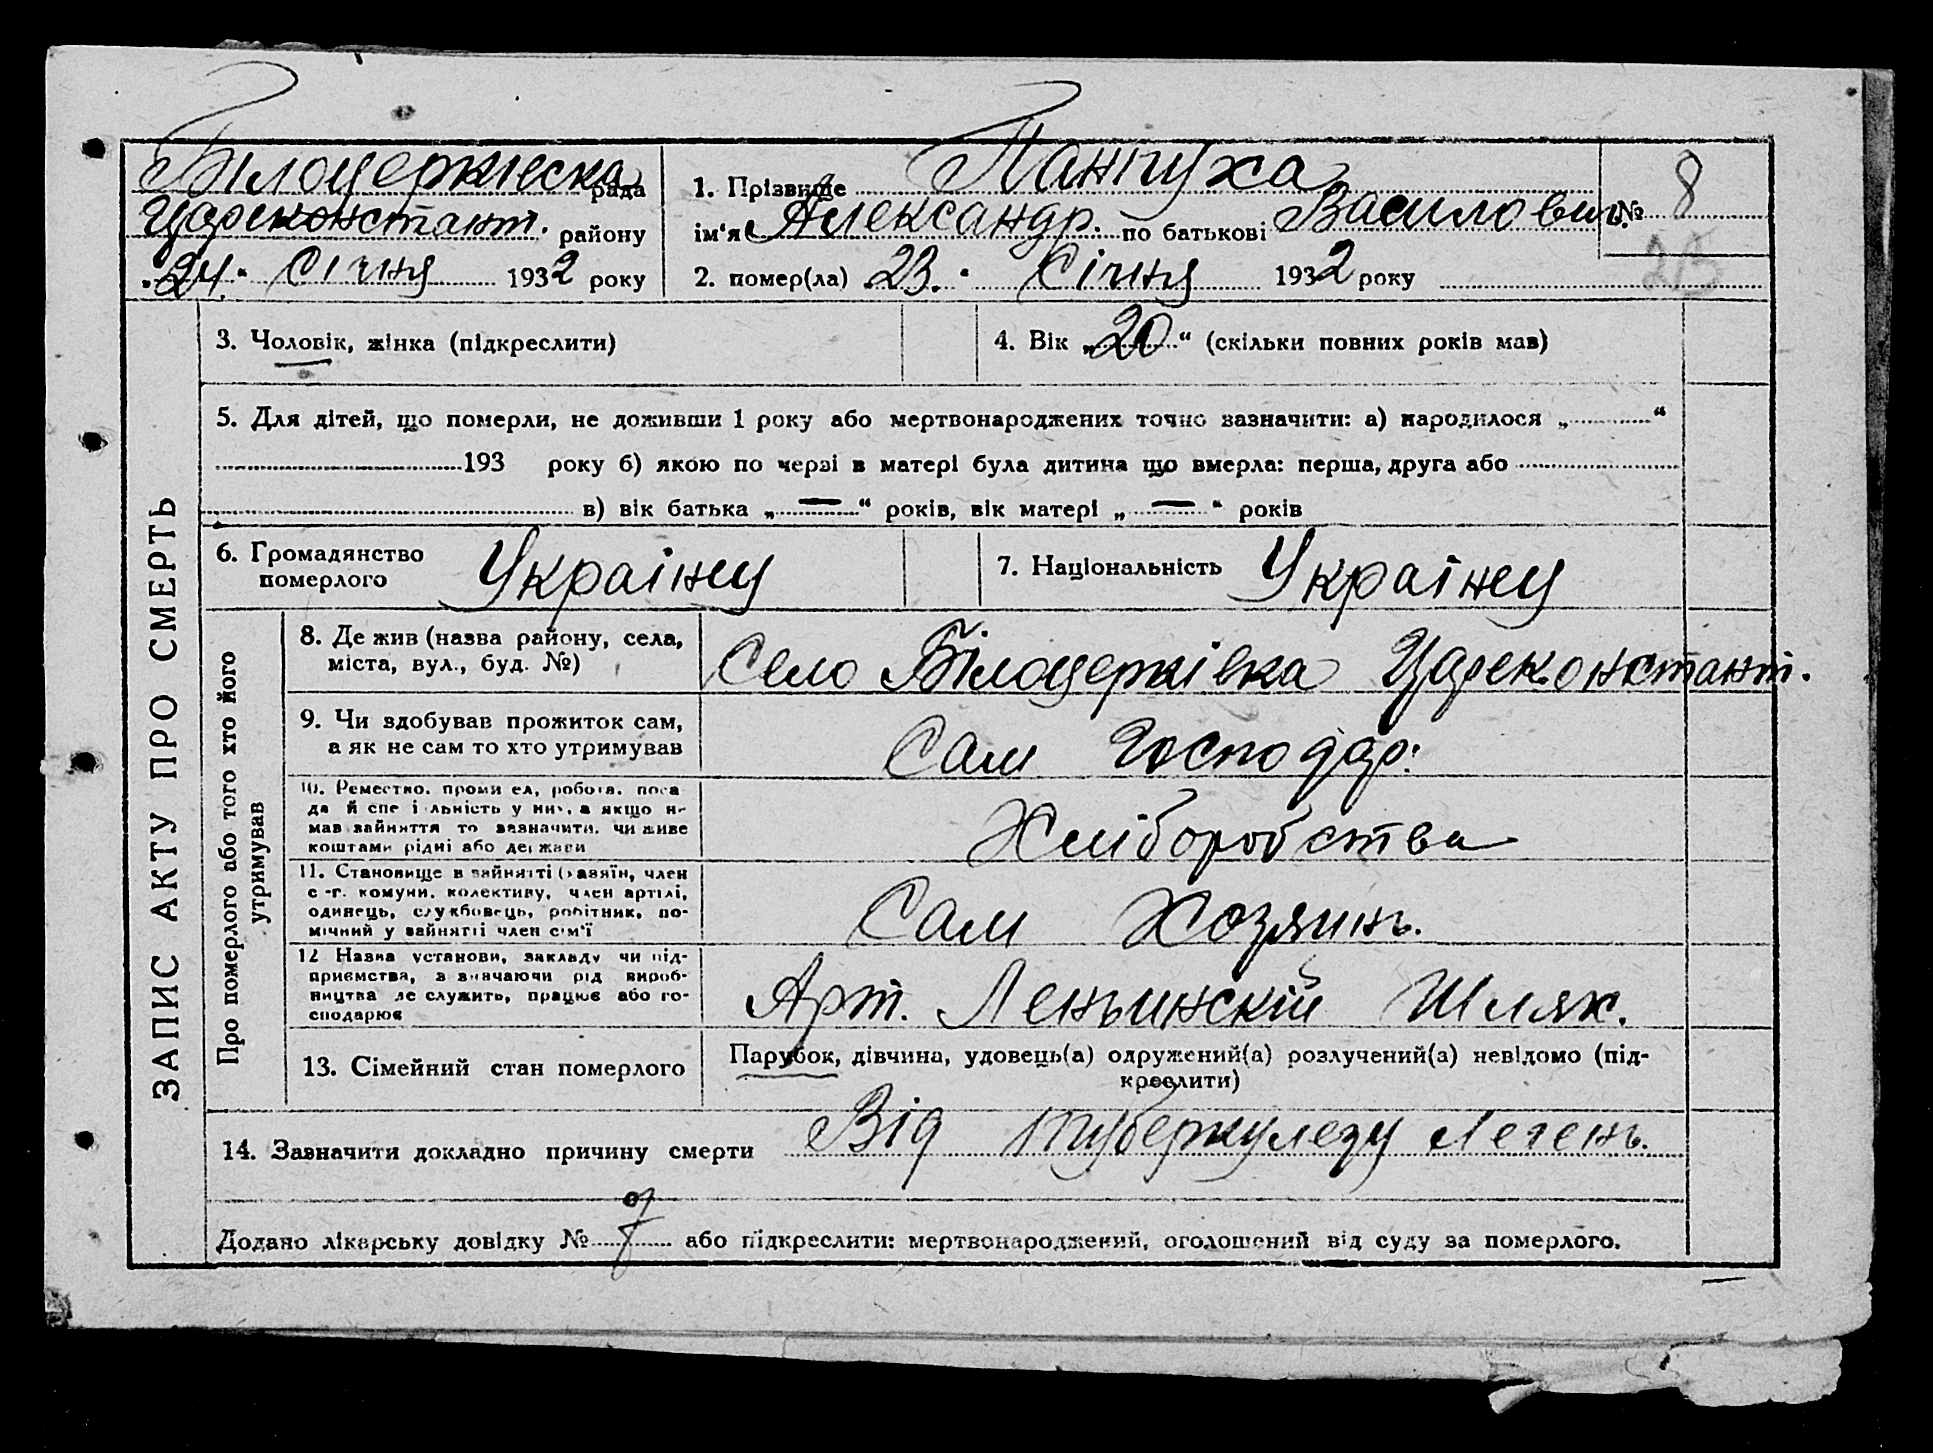 Білоцерківска рада
Цареконстант. району
„24.“ Січня 1932 року
1. Прізвище Пантуха
ім'я Александр. по батькові Василович
№ 8
2. помер(ла) 23. Січня 1932 року
23
ЗАПИС АКТУ ПРО СМЕРТЬ
3. Чоловік, жінка (підкреслити)
4. Вік „20“ (скільки повних років мав)
5. Для дітей, що померли, не доживши 1 року або мертвонароджених точно зазначити: а) народилося „ “
193 року б) якою по черзі в матері була дитина що вмерла: перша, друга або
в) вік батька „—“ років, вік матері „—“ років
6. Громадянство
померлого
Українец
7. Національність Українец
Про померлого або того хто його
утримував
8. Де жив (назва району, села,
міста, вул., буд. №)
Село Білоцерківка Цареконстант.
9. Чи здобував прожиток сам,
а як не сам то хто утримував
Сам Господар.
10. Ремество, промисел, робота, поса
да й спеціяльність у них, а якщо не
мав зайняття то зазначити, чи живе
коштами рідні або держави
Хліборобства
11. Становище в зайнятті (хазяїн, член
с.-г. комуни, колективу, член артілі,
одинець, службовець, робітник, по-
мічний у зайнятті член сім'ї
Сам Хозяинъ.
12 Назва установи, закладу чи під-
приємства, зазначаючи рід вироб-
ництва де служить, працює або го-
сподарює
Арт. Леньинскій Шлях.
13. Сімейний стан померлого
Парубок, дівчина, удовець(а) одружений(а) розлучений(а) невідомо (під-
креслити)
14. Зазначити докладно причину смерти Від туберкулезу Легень.
Додано лікарську довідку № або підкреслити: мертвонароджений, оголошений від суду за померлого.